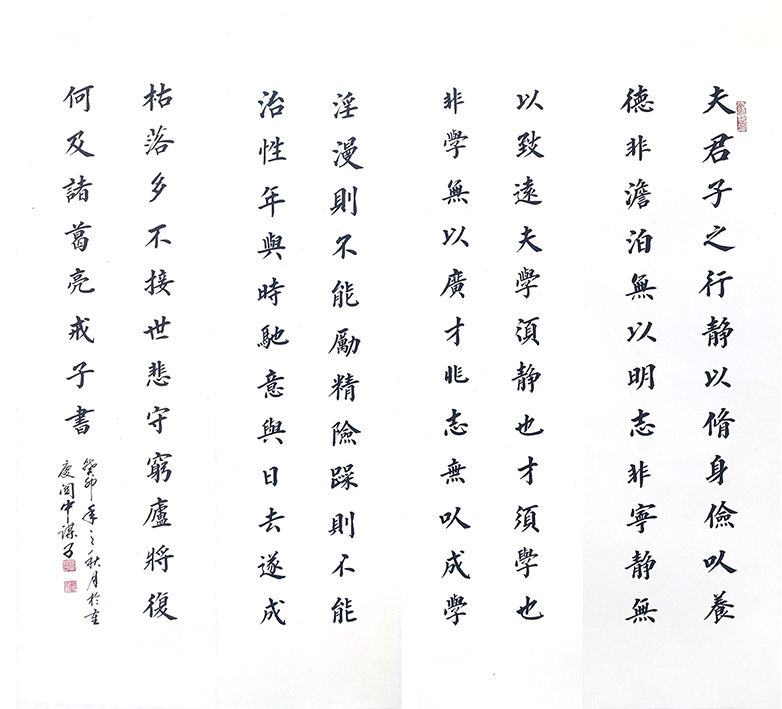 夫君子之行静以脩身儉以養
德非澹泊無以明志非寧静無
以致遠夫學須静也才須學也
非學無以廣才非志無以成學
淫漫則不能勵精險躁則不能
治性年與時馳意與日去遂成
枯落多不接世悲守窮廬將復
何及諸葛亮戒子書
癸卯年之秋月於重
慶中子